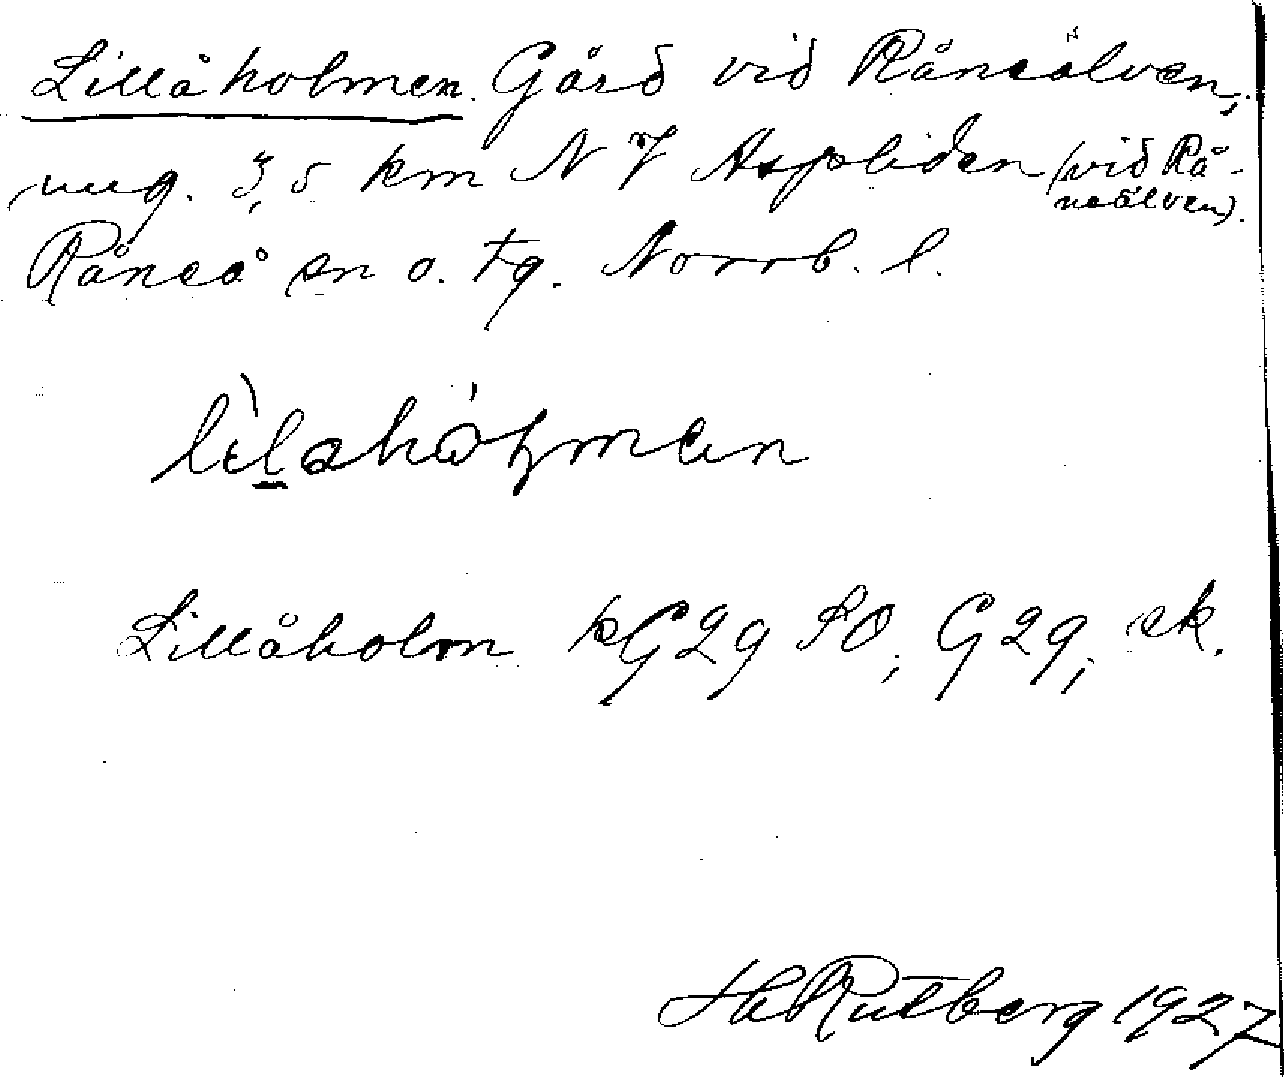 Lillåholmen. Gård vid Råneälven,
ung. 3,5 km N Aspliden (vid Rå-
neälven).
Råneå sn o. tg. Norrb. l.
Lillåholm G2g SO; G2g; ek.
H Rutberg 1927